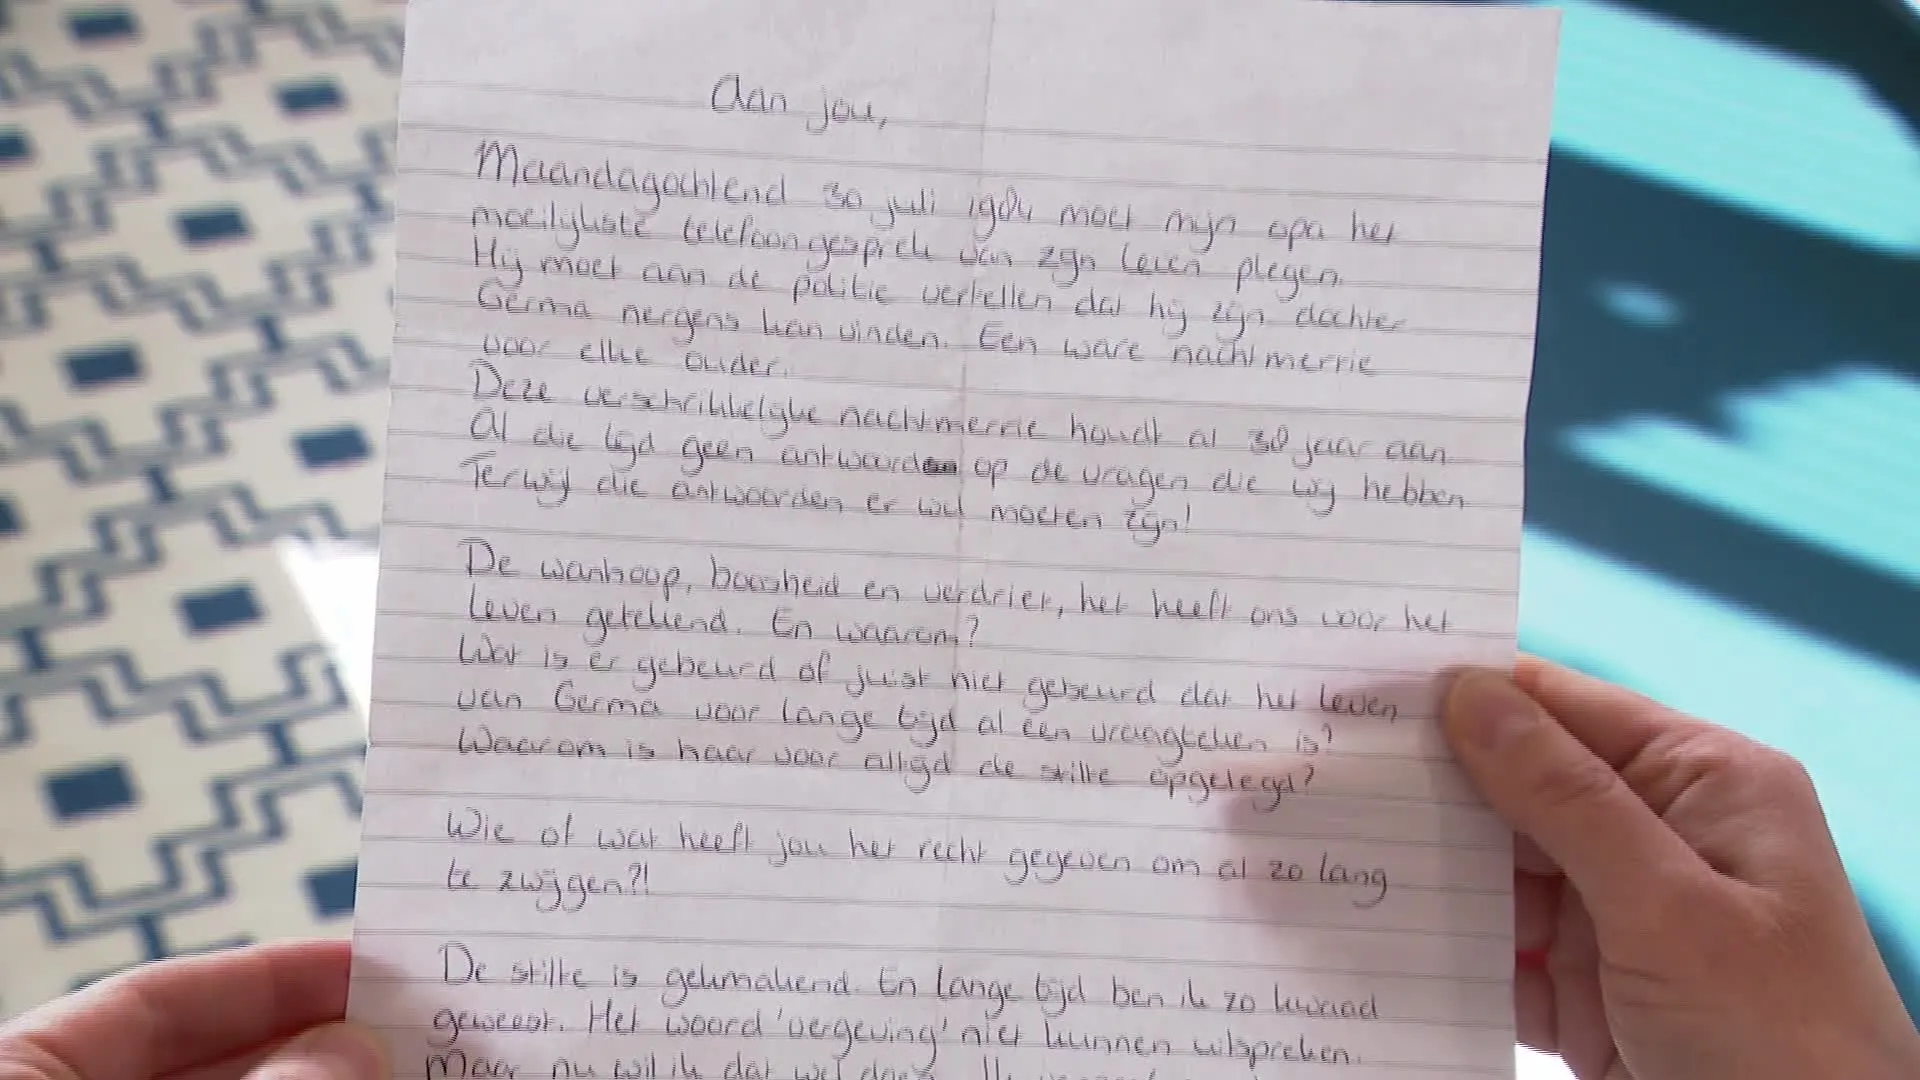 Aan jou,
Maandagochtend 30 juli 1984 moet mijn opa het
moeilijkste telefoongesprek van zijn leven plegen.
Hij moet aan de politie vertellen dat hij zijn dochter
Germa nergens kan vinden. Een ware nachtmerrie
voor elke ouder.
Deze verschrikkelijke nachtmerrie houdt al 38 jaar aan.
Al die tijd geen antwoorden op de vragen die wij hebben
Terwijl die antwoorden er wel moeten zijn!
De wanhoop, boosheid en verdriet, het heeft ons voor het
leven getekend. En waarom?
Wat is er gebeurd of juist niet gebeurd dat het leven
van Germa voor lange tijd al een vraagteken is?
Waarom is haar voor altijd de stilte opgelegd?
Wie of wat heeft jou het recht gegeven om al zo lang
te zwijgen?!
De stilte is gekmakend. En lange tijd ben ik zo kwaad
geweest. Het woord 'vergeving' niet kunnen uitspreken.
Maar nu wil ik dat wel doen. Ik